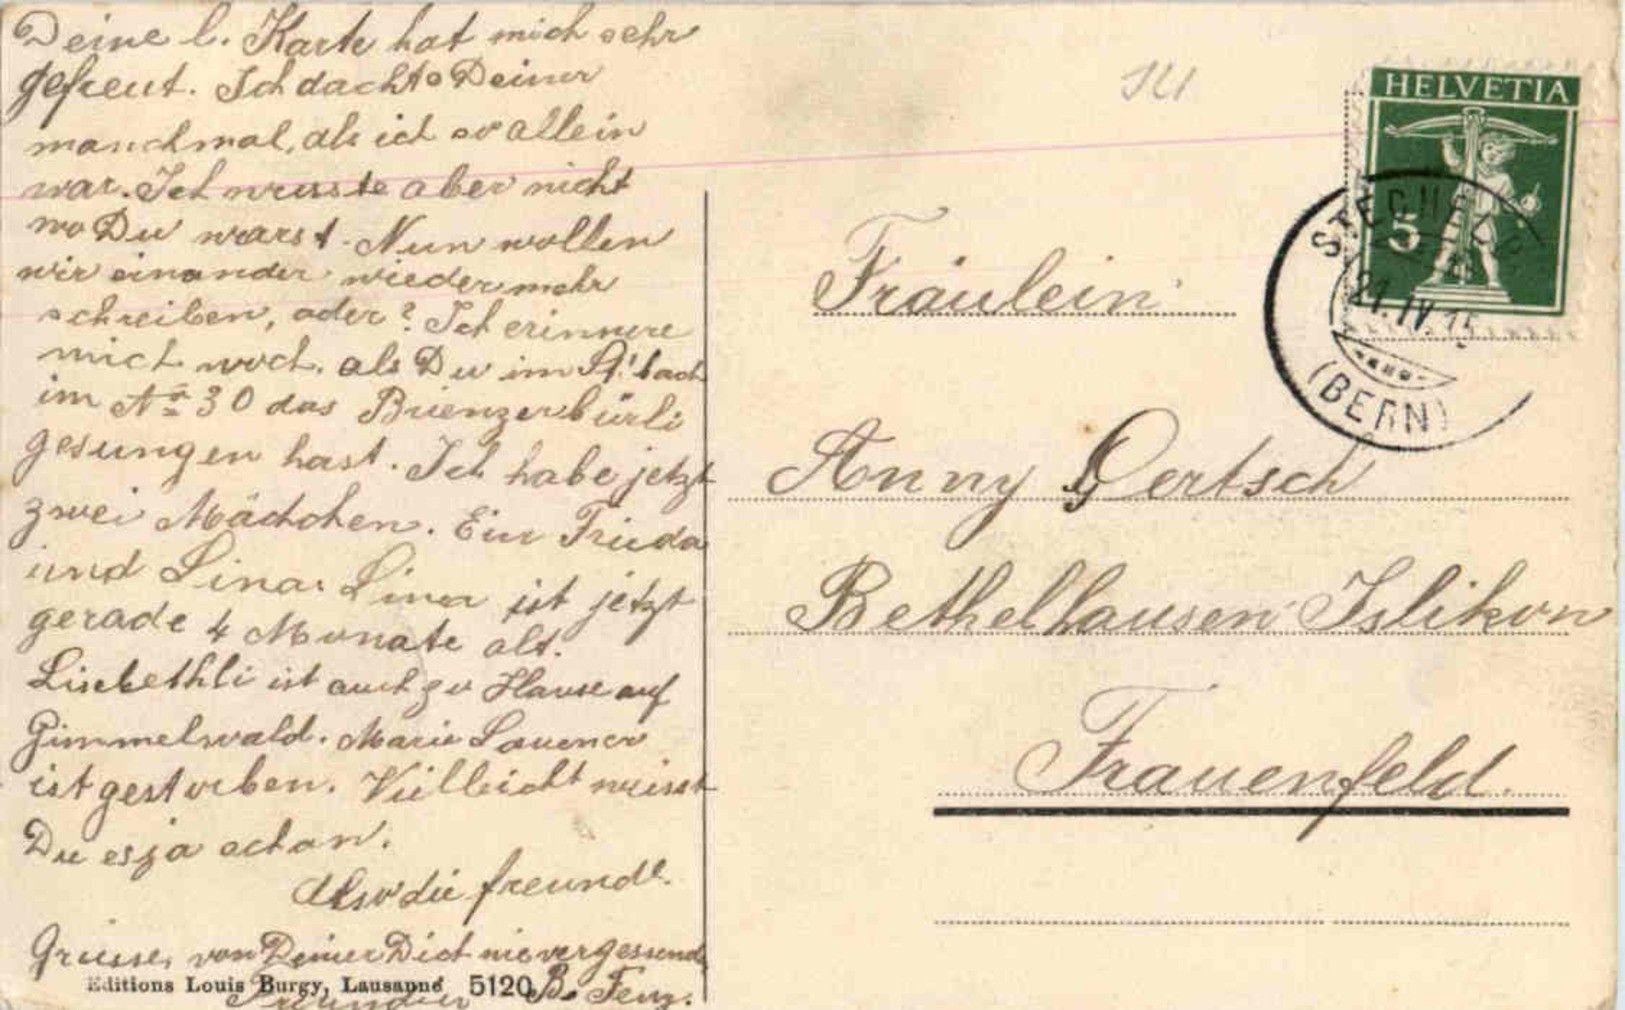 Deine l. Karte hat mich sehr
gefreut. Ich dachte Deiner
manchmal, als ich so allein
war. Ich wusste aber nicht
wo Du warst. Nun wollen
wir einander wieder mehr
schreiben, oder? Ich erinnere
mich noch, als Du im A'bach
im No 30 das Brienzerbürli
gesungen hast. Ich habe jetzt
zwei Mädchen. Ein Frieda
und Lina. Lina ist jetzt
gerade 4 Monate alt.
Lisebethli ist auch zu Hause auf
Gimmelwald. Marie Lauener
ist gestorben. Vielleicht weisst
Du es ja schon.
Also die freundl.
Grüsse, von Deiner Dich nie vergessend
Freundin B. Feuz.
Editions Louis Burgy, Lausanne 5120
HELVETIA
5
STECHELB
21.IV.15
(BERN)
Fräulein
Anny Gertsch
Bethelhausen Islikon
Frauenfeld.